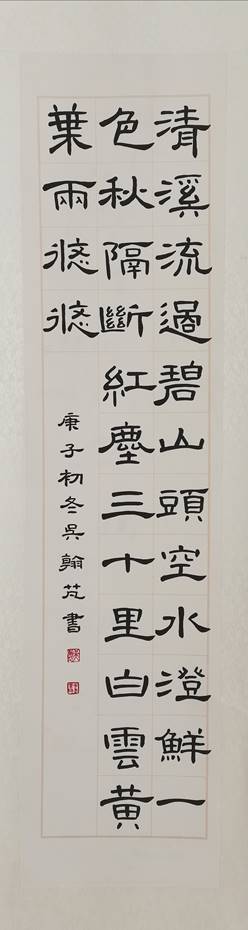 清溪流過碧山頭空水澄鮮一
色秋隔斷紅塵三十里白雲黃
葉兩悠悠
庚子初冬吳翰芃書